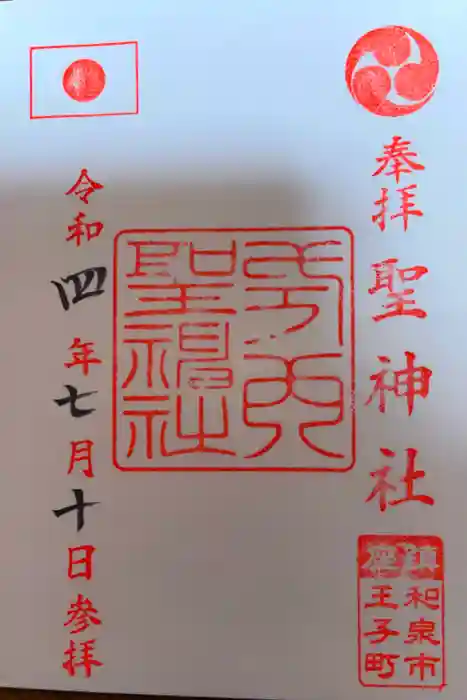 奉拝
聖神社
鎮座
和泉市
王子町
内
聖神社
令和四年七月十日参拝